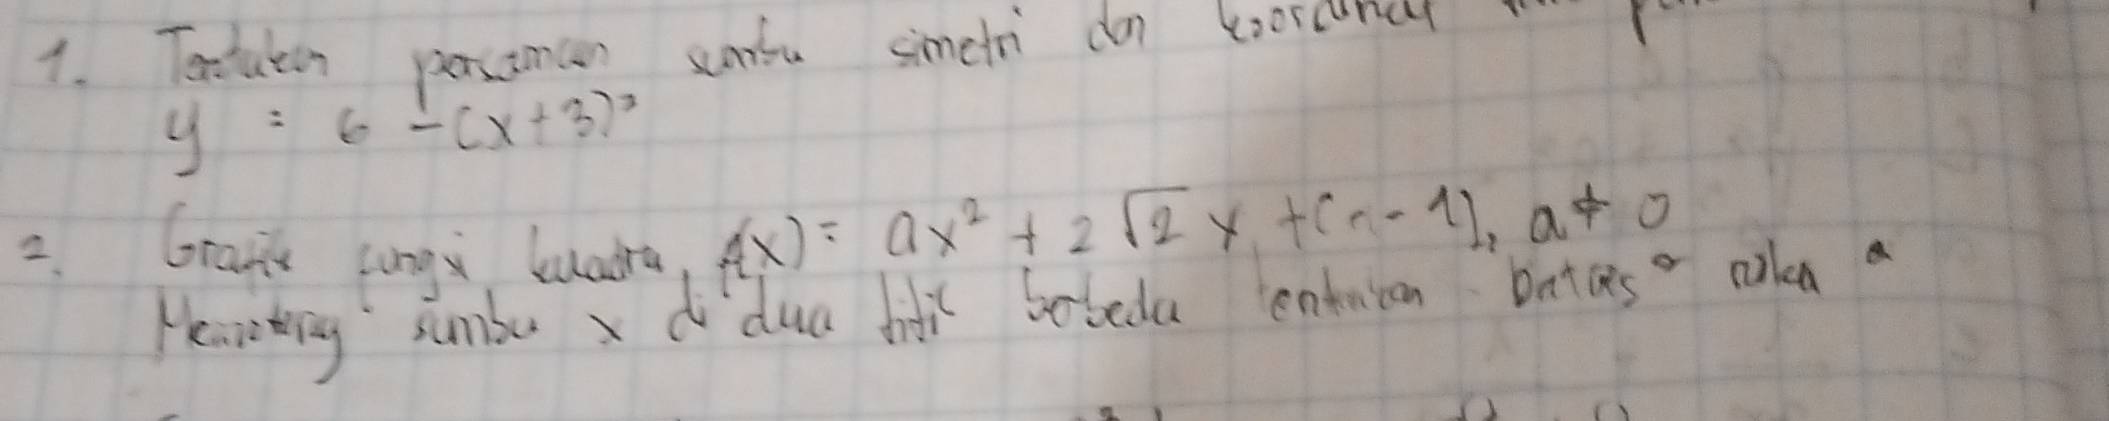 1. Tentukan persamaan sumbu simetri dan koordinat
y = 6 - (x + 3)²
2. Grafik fungsi kuadra, f(x) = ax² + 2√2 x + (a - 1), a ≠ 0
Memotong sumbu x di dua titik berbeda tentukan batas² nilai a